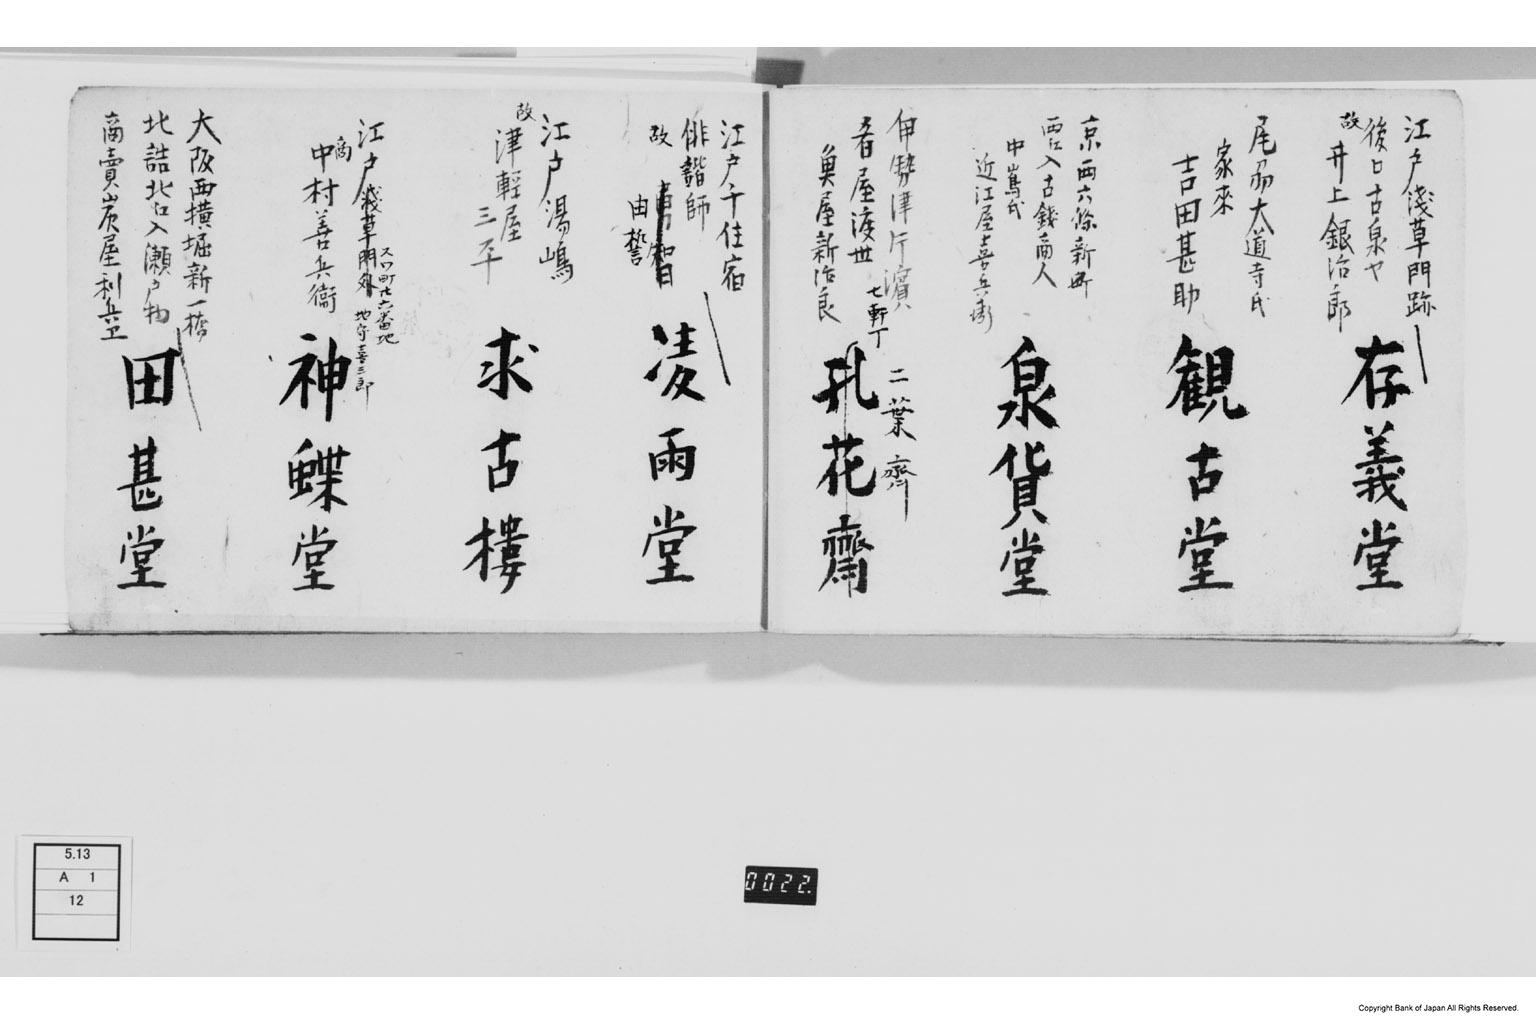 江戸淺草門跡
後口古泉ヤ
故
井上銀治郎
存義堂
尾刕大道寺氏
家來
吉田甚助
観古堂
京西六條新町
西江入古錢商人
中嶌氏
近江屋喜兵衛
泉貨堂
伊勢津片濵
七軒丁
二葉齋
肴屋渡世
魚屋新治良
孔花齋
江戸千住宿
俳諧師
故
由誓
凌雨堂
江戸湯嶋
故
津輕屋
三平
求古樓
江戸淺草門外
地守喜三郎
商
中村善兵衞
神蝶堂
大阪西横堀新一橋
北詰北江入瀬戸物
商賣炭屋利兵卫
田甚堂
5.13
A 1
12
0022
Copyright Bank of Japan All Rights Reserved.